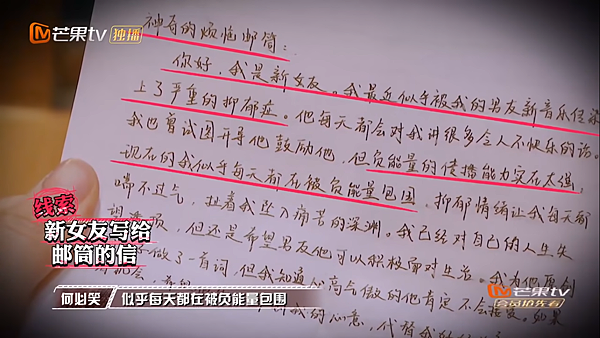 芒果tv 独播
神奇的烦恼邮筒：
你好，我是新女友。我最近似乎被我的男友新音乐传染
上了严重的抑郁症。他每天都会对我讲很多令人不快乐的话。
我也曾试图开导他鼓励他，但负能量的传播能力实在太强，
现在的我似乎每天都在被负能量包围，抑郁情绪让我每天都
喘不过气，拉着我坠入痛苦的深渊。我已经对自己的人生失
但还是希望男友他可以积极面对生活。我为他
做了一首词，但我知道心高气傲的他肯定不会接受。如果
的心意，代替我
线索
新女友写给
邮筒的信
何必笑 似乎每天都在被负能量包围
芒果tv
会员抢先看